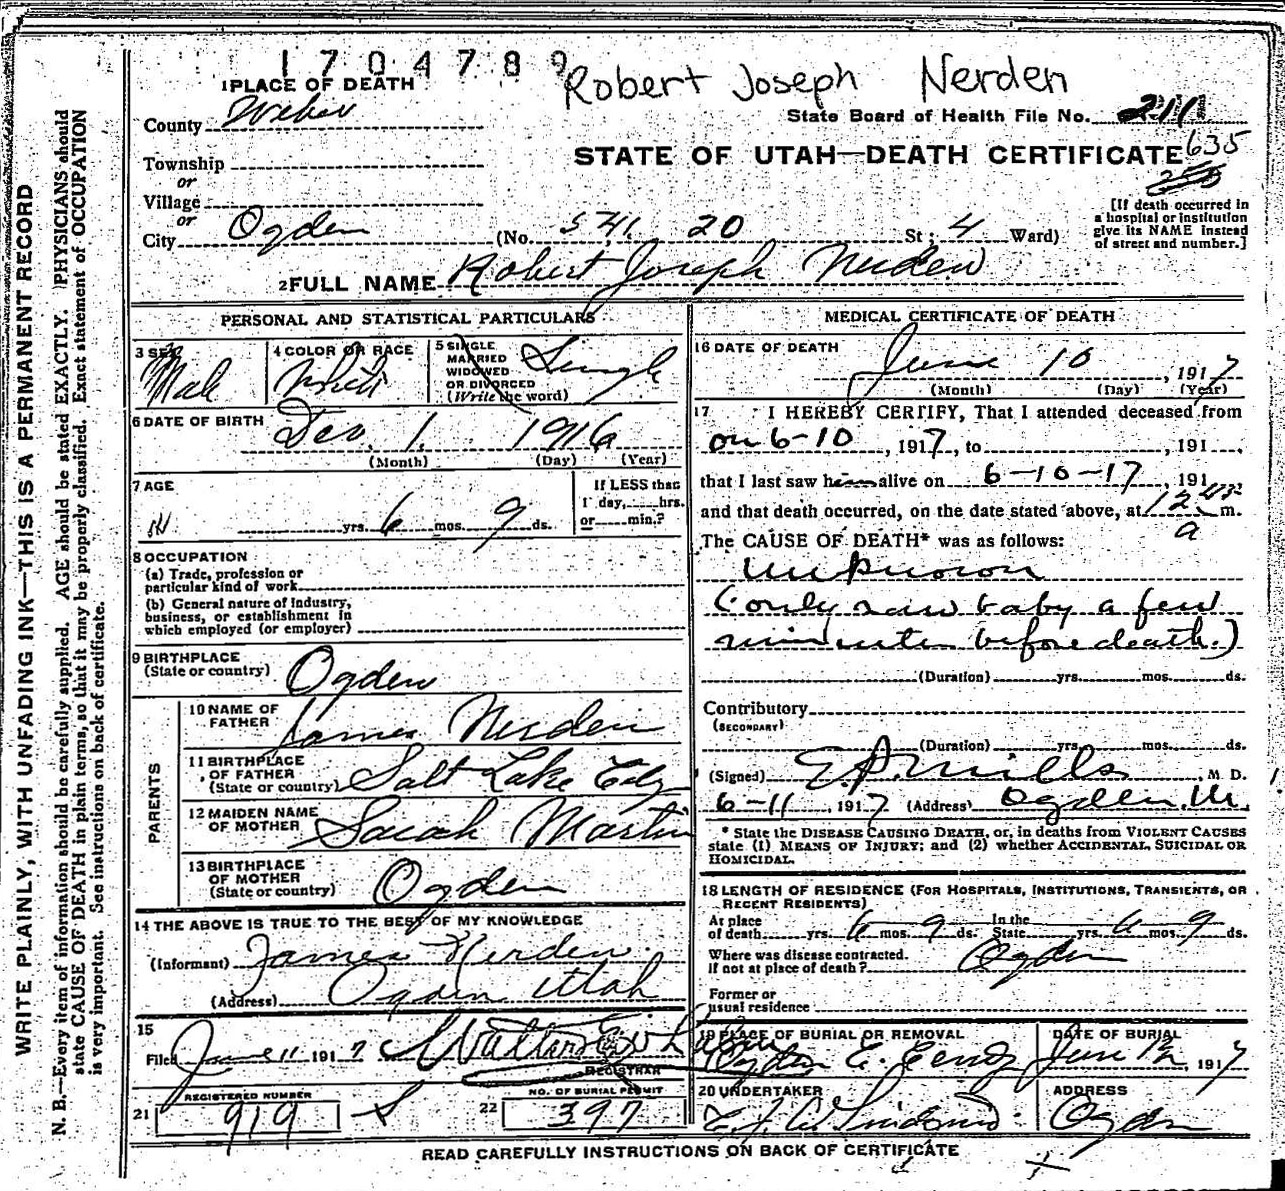 1704789
Robert Joseph Nerden
1 PLACE OF DEATH
State Board of Health File No. 211
County Weber
STATE OF UTAH—DEATH CERTIFICATE 635
Township
or
Village
or
City Ogden (No. 541 20 St; 4 Ward)
[If death occurred in
a hospital or institution
give its NAME instead
of street and number.]
2 FULL NAME Robert Joseph Nerden
PERSONAL AND STATISTICAL PARTICULARS
3 SEX
Male
4 COLOR OR RACE
White
5 SINGLE
MARRIED
WIDOWED
OR DIVORCED
(Write the word)
Single
6 DATE OF BIRTH Dec. 1. 1916
(Month) (Day) (Year)
7 AGE
yrs. 6 mos. 9 ds.
If LESS than
1 day, hrs.
or min.?
8 OCCUPATION
(a) Trade, profession or
particular kind of work
(b) General nature of Industry,
business, or establishment in
which employed (or employer)
9 BIRTHPLACE
(State or country) Ogden
PARENTS
10 NAME OF
FATHER James Nerden
11 BIRTHPLACE
OF FATHER
(State or country) Salt Lake City
12 MAIDEN NAME
OF MOTHER Sarah Martin
13 BIRTHPLACE
OF MOTHER
(State or country) Ogden
14 THE ABOVE IS TRUE TO THE BEST OF MY KNOWLEDGE
(Informant) James Nerden
(Address) Ogden Utah
15
Filed June 11 1917
REGISTRAR
REGISTERED NUMBER
21 919
NO. OF BURIAL PERMIT
22 397
MEDICAL CERTIFICATE OF DEATH
16 DATE OF DEATH
June 10, 1917
(Month) (Day) (Year)
17 I HEREBY CERTIFY, That I attended deceased from
on 6-10, 1917, to , 191
that I last saw him alive on 6-10-17, 191
and that death occurred, on the date stated above, at 12 45 m.
a
The CAUSE OF DEATH* was as follows:
Unknown
(only saw baby a few
minutes before death.)
(Duration) yrs. mos. ds.
Contributory
(SECONDARY)
(Duration) yrs. mos. ds.
(Signed) E.P. Mills, M. D.
6-11, 1917 (Address) Ogden, Ut.
* State the DISEASE CAUSING DEATH, or, in deaths from VIOLENT CAUSES
state (1) MEANS OF INJURY; and (2) whether ACCIDENTAL, SUICIDAL OR
HOMICIDAL.
18 LENGTH OF RESIDENCE (FOR HOSPITALS, INSTITUTIONS, TRANSIENTS, OR
RECENT RESIDENTS)
At place
of death yrs. 6 mos. 9 ds.
In the
State yrs. 6 mos. 9 ds.
Where was disease contracted.
If not at place of death? Ogden
Former or
usual residence
19 PLACE OF BURIAL OR REMOVAL
Ogden C. Cemty
DATE OF BURIAL
June 12, 1917
20 UNDERTAKER
ADDRESS
Ogden
READ CAREFULLY INSTRUCTIONS ON BACK OF CERTIFICATE
WRITE PLAINLY, WITH UNFADING INK—THIS IS A PERMANENT RECORD
N. B.—Every item of information should be carefully supplied. AGE should be stated EXACTLY. PHYSICIANS should
state CAUSE OF DEATH in plain terms, so that it may be properly classified. Exact statement of OCCUPATION
is very important. See instructions on back of certificate.